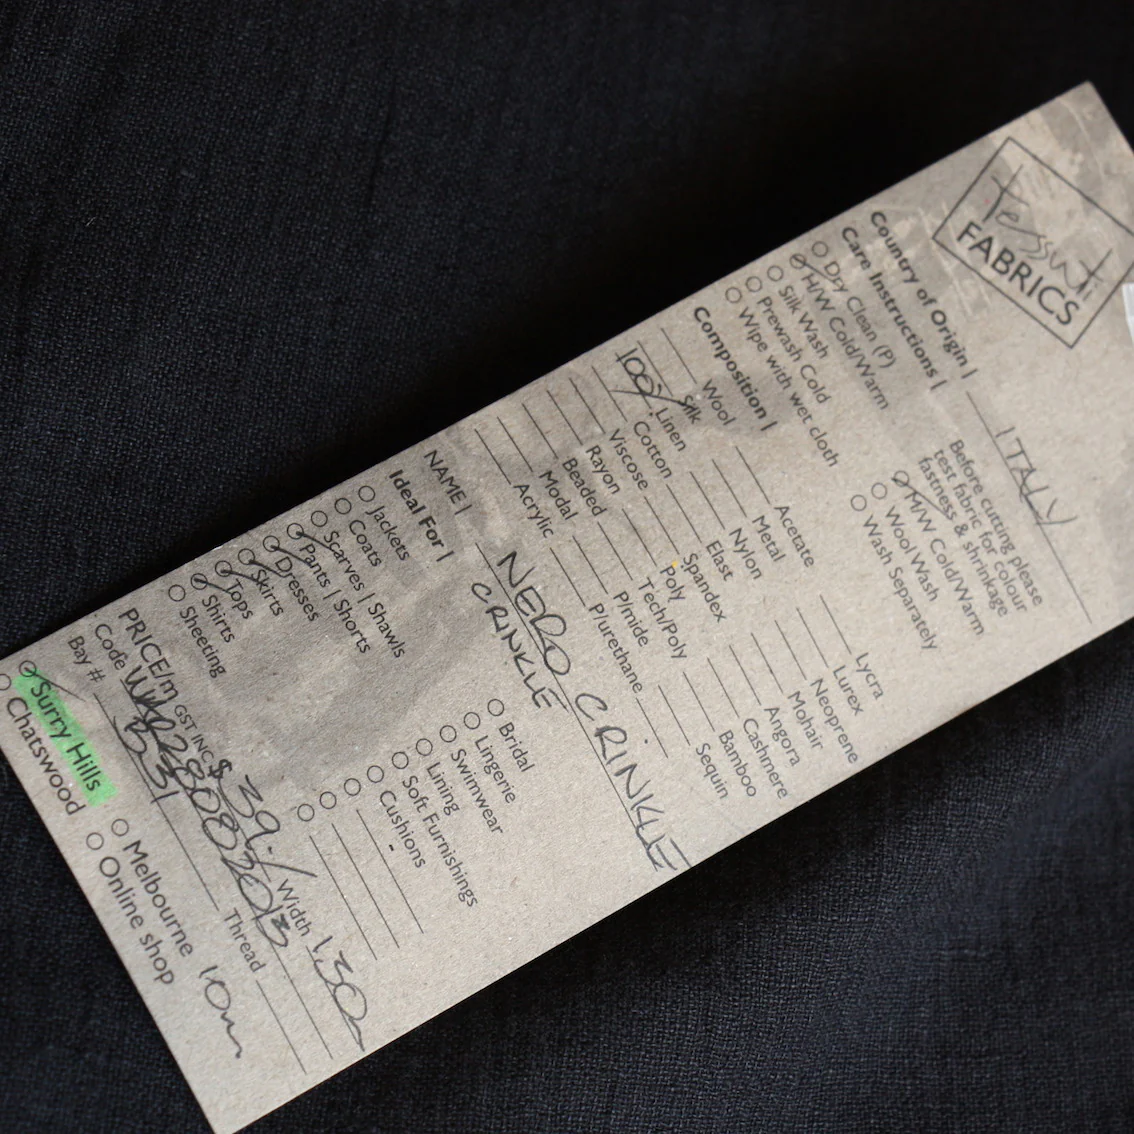 tessuti
FABRICS
Country of Origin | ITALY
Care Instructions |
Dry Clean (P)
H/W Cold/Warm
Silk Wash
Prewash Cold
Wipe with wet cloth
Before cutting please
test fabric for colour
fastness & shrinkage
M/W Cold/Warm
Wool Wash
Wash Separately
Composition |
Wool
Silk
100% Linen
Cotton
Viscose
Rayon
Beaded
Modal
Acrylic
Acetate
Metal
Nylon
Elast
Spandex
Poly
Tech/Poly
P/mide
P/urethane
Lycra
Lurex
Neoprene
Mohair
Angora
Cashmere
Bamboo
Sequin
NAME | NERO CRINKLE
CRINKLE
Ideal For |
Jackets
Coats
Scarves | Shawls
Pants | Shorts
Dresses
Skirts
Tops
Shirts
Sheeting
Bridal
Lingerie
Swimwear
Lining
Soft Furnishings
Cushions
PRICE/m GST INC $ 39./ Width 1.30m
Code
Bay # Thread
Surry Hills
Chatswood
Melbourne
Online shop
10m